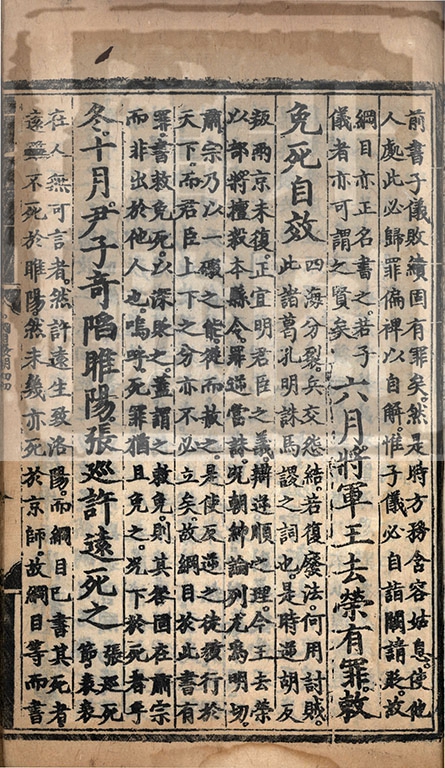 前書子儀敗績固有罪矣。然是時方務含容姑息。使他
人處此必歸罪偏裨以自解。惟子儀必自詣闕請貶。故
綱目亦正名書之。若子
儀者亦可謂之賢矣
六月將軍王去榮有罪。敕
免死自效
四海分裂。兵交怨結。若復廢法。何用討賊。
此諸葛孔明誅馬謖之詞也。是時逆胡反
叛。兩京未復。正宜明君臣之義。辯逆順之理。今王去榮
以部將擅殺本縣令。罪逆當誅。況朝紳論列尤為明切。
肅宗乃以一礮之能。從而赦之。是使反逆之徒獲行於
天下。而君臣上下之分亦不必立矣。故綱目於此書有
罪。書敕免死。以深貶之。蓋謂之敕免。則其咎固在肅宗
而非出於他人也。嗚呼。死罪猶且免之。況下於死者乎
冬。十月。尹子奇陷睢陽。張巡許遠死之
張巡死
節。表表
在人無可言者。然許遠生致洛陽。而綱目已書其死者。
遠雖不死於睢陽。然未幾亦死於京師。故綱目等而書